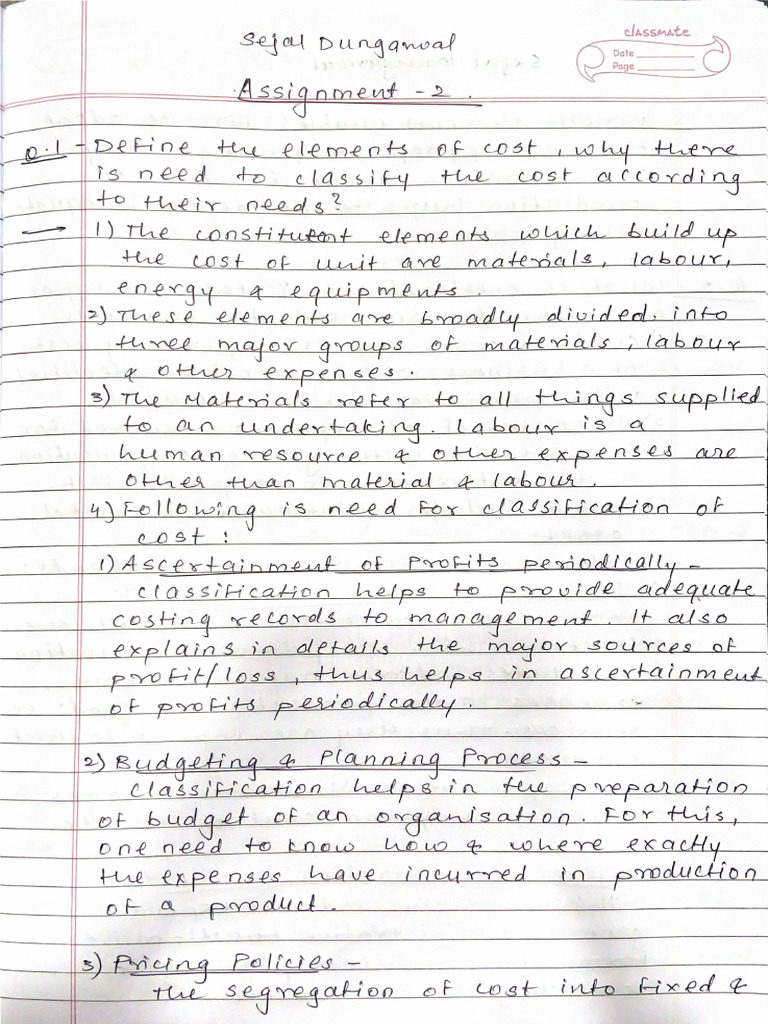 Sejal Dungarwal
classmate
Date
Page
Assignment - 2.
Q.1 - Define the elements of cost, why there
is need to classify the cost according
to their needs?
→ 1) The constituent elements which build up
the cost of unit are materials, labour,
energy & equipments.
2) These elements are broadly divided into
three major groups of materials, labour
& other expenses.
3) The Materials refer to all things supplied
to an undertaking. Labour is a
human resource & other expenses are
other than material & labour.
4) Following is need for classification of
cost :
1) Ascertainment of Profits periodically -
classification helps to provide adequate
costing records to management. It also
explains in details the major sources of
profit/loss, thus helps in ascertainment
of profits periodically.
2) Budgeting & Planning Process -
Classification helps in the preparation
of budget of an organisation. For this,
one need to know how & where exactly
the expenses have incurred in production
of a product.
3) Pricing Policies -
The segregation of cost into fixed &